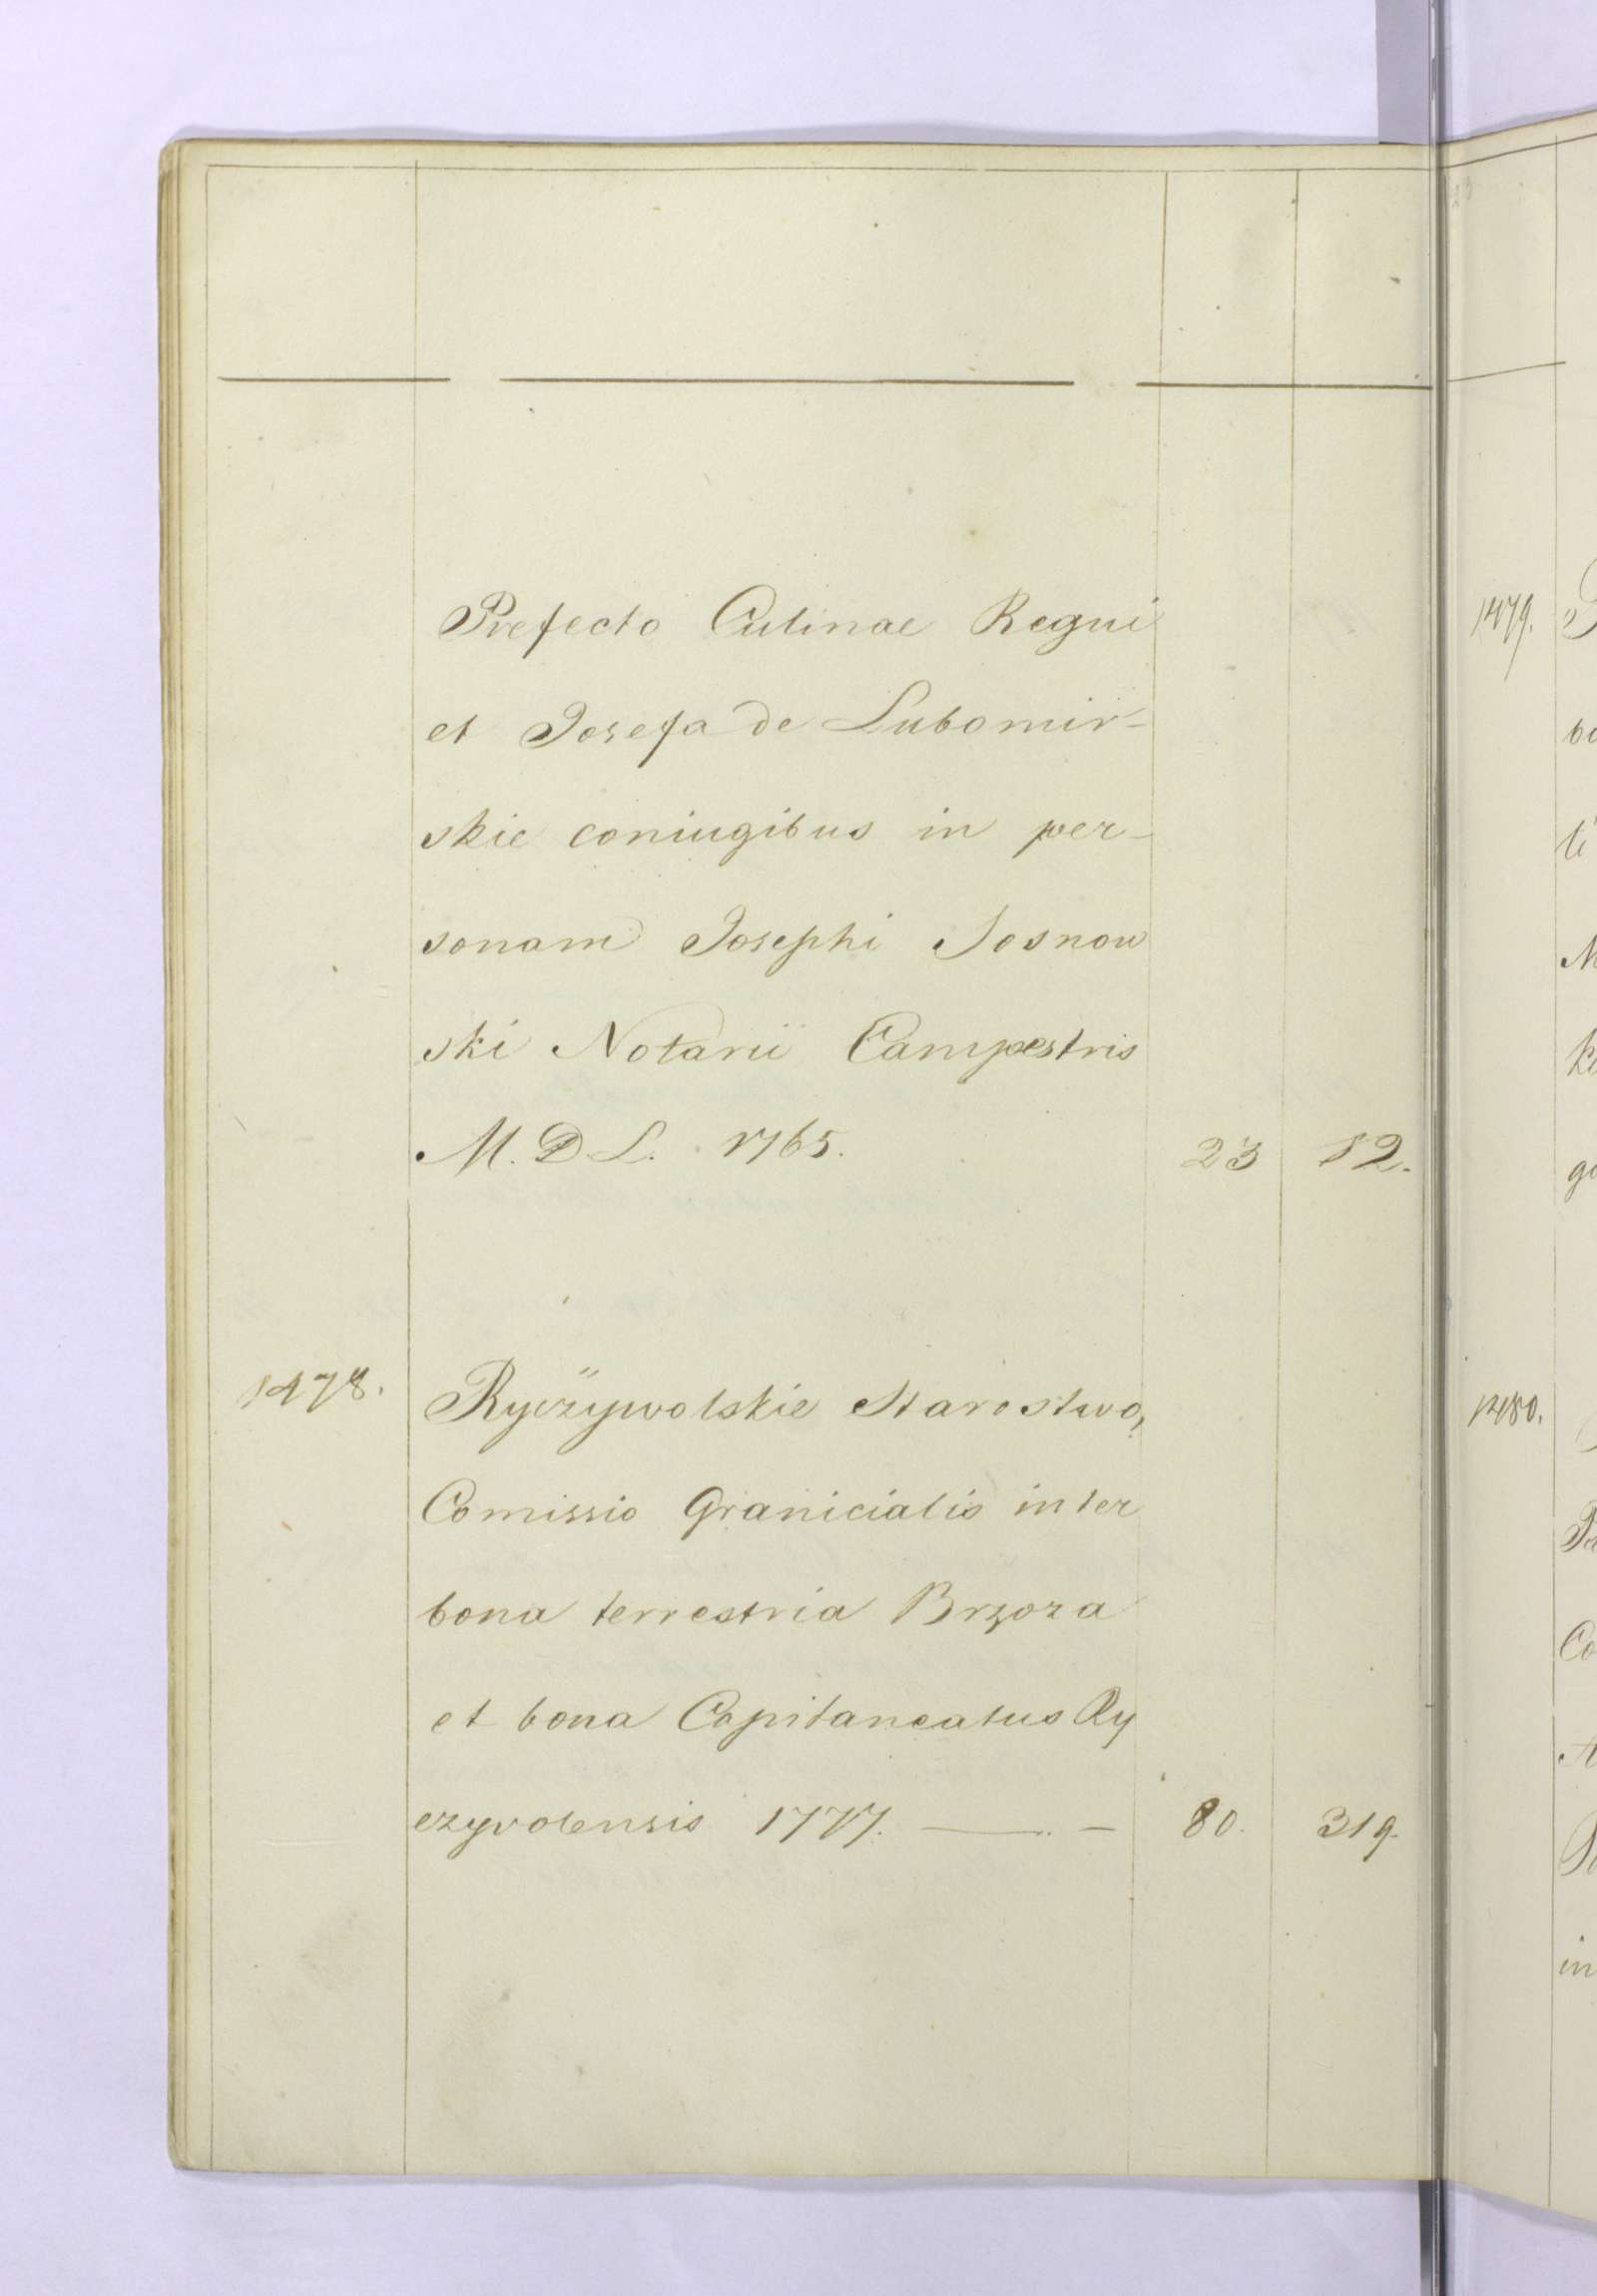 Prefecto Culinae Regni
et Josefa de Lubomir-
skie coniugibus in per-
sonam Josephi Sosnow
ski Notarii Campestris
M. D. L. 1765. 23 12.
1478. Ryczywolskie Starostwo,
Comissio Granicialis inter
bona terrestria Brzoza
et bona Capitaneatus Ry
czyvolensis 1777. — – 80. 319.
1479.
bo
li
M
go
1480.
Pa
Co
in